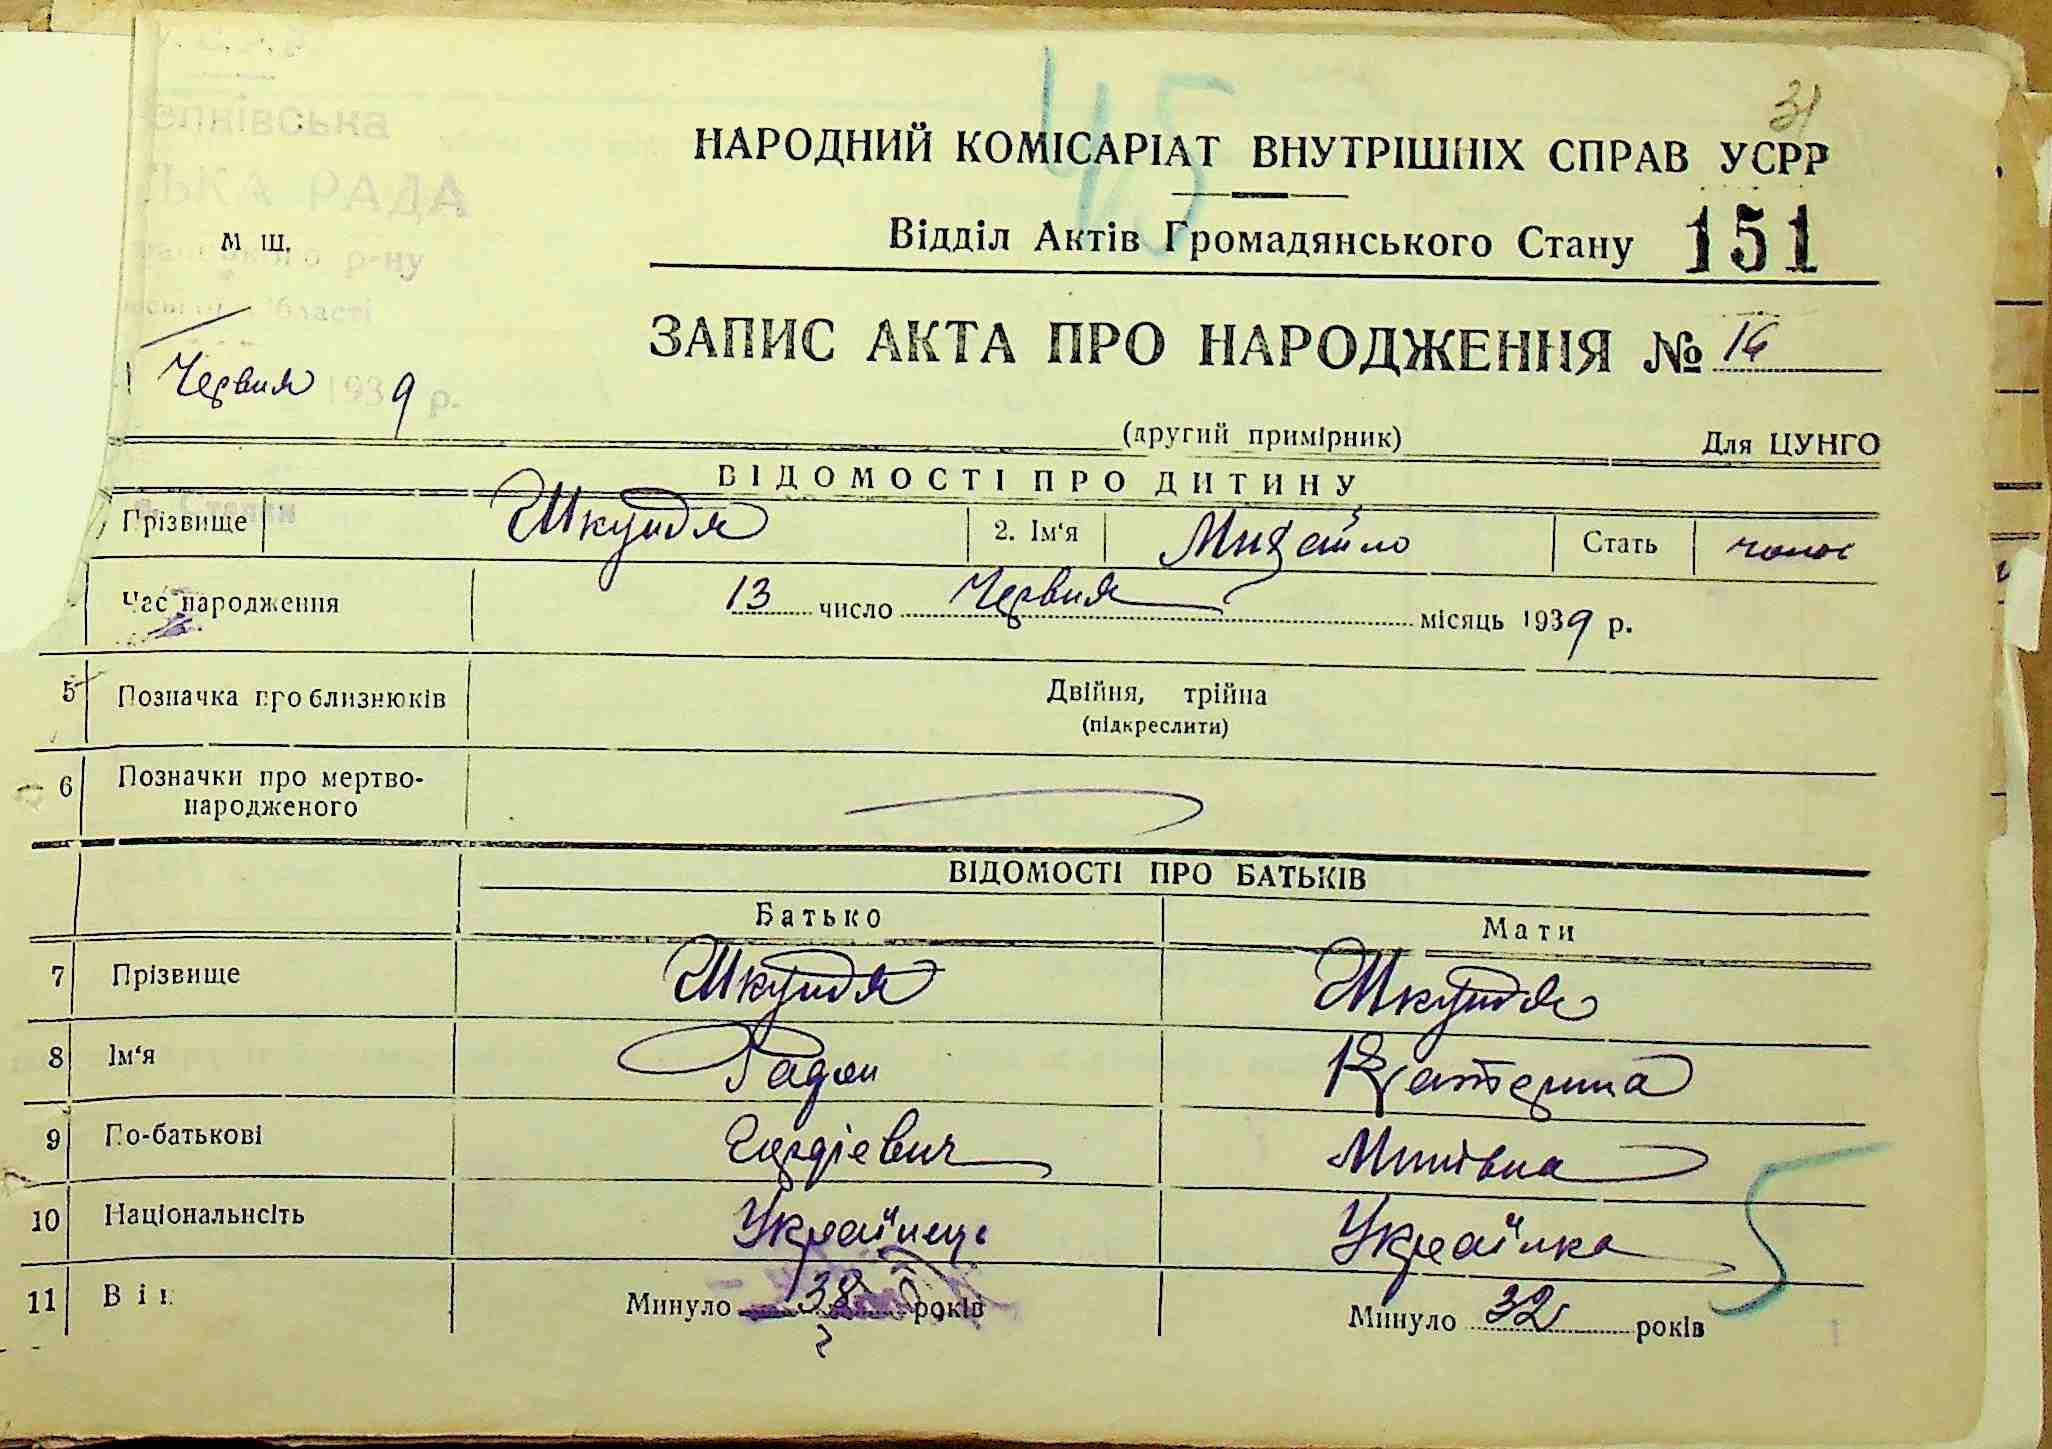 45
31
НАРОДНИЙ КОМІСАРІАТ ВНУТРІШНІХ СПРАВ УСРР
РАДА
м ш.
р-ну
Відділ Актів Громадянського Стану 151
ЗАПИС АКТА ПРО НАРОДЖЕННЯ №
Червня 1939 р.
(другий примірник) Для ЦУНГО
ВІДОМОСТІ ПРО ДИТИНУ
Прізвище Шкундя 2. Ім'я Михайло Стать чолос
Час народження 13 число Червня місяць 1939 р.
5 Позначка про близнюків Двійня, трійна
(підкреслити)
6 Позначки про мертво-
народженого
ВІДОМОСТІ ПРО БАТЬКІВ
Батько Мати
7 Прізвище Шкундя Шкундя
8 Ім'я Радон Катерина
9 По-батькові Гордієвич Минівна
10 Національнсіть Українець Українка
5
11 Вік Минуло 38 років Минуло 32 років